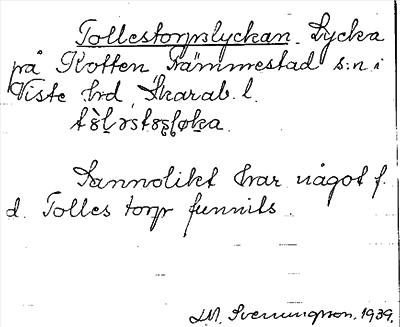 Tollestorpslyckan. Lycka
på Kotten Främmestad s:n i
Viste hrd, Skarab. l.
Sannolikt har något f.
d. Tolles torp funnits.
J.M. Svenungson. 1939.